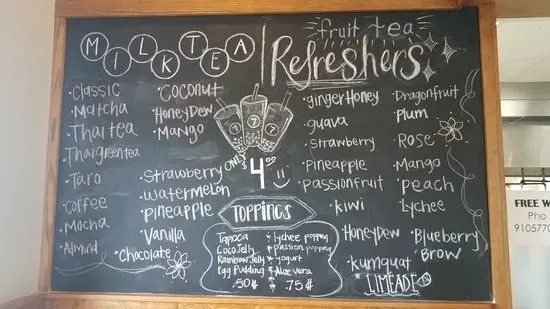 MILK TEA
• Classic
• Matcha
• Thai tea
• Thai green tea
• Taro
• Coffee
• Mocha
• Almond
• Coconut
• HoneyDew
• Mango
• Strawberry
• Watermelon
• Pineapple
• Vanilla
• Chocolate
ONLY
$4.00
fruit tea
Refreshers
• ginger Honey
• guava
• Strawberry
• Pineapple
• Passionfruit
• kiwi
• HoneyDew
• kumquat
* LIMEADE
• Dragonfruit
• Plum
• Rose
• Mango
• Peach
• Lychee
• Blueberry
BROW
TOPPINGS
Tapioca
Coco Jelly
Rainbow Jelly
Egg Pudding
.50¢
* lychee popping
* passion popping
* yogurt
* Aloe vera
.75¢
FREE W
Pho
9105770